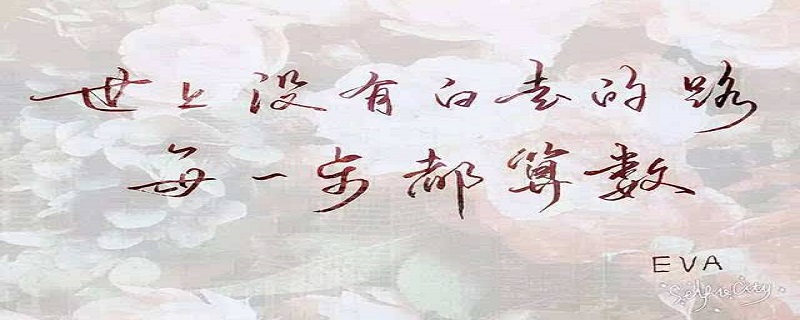 世上没有白走的路
每一步都算数
EVA
SelfieCity